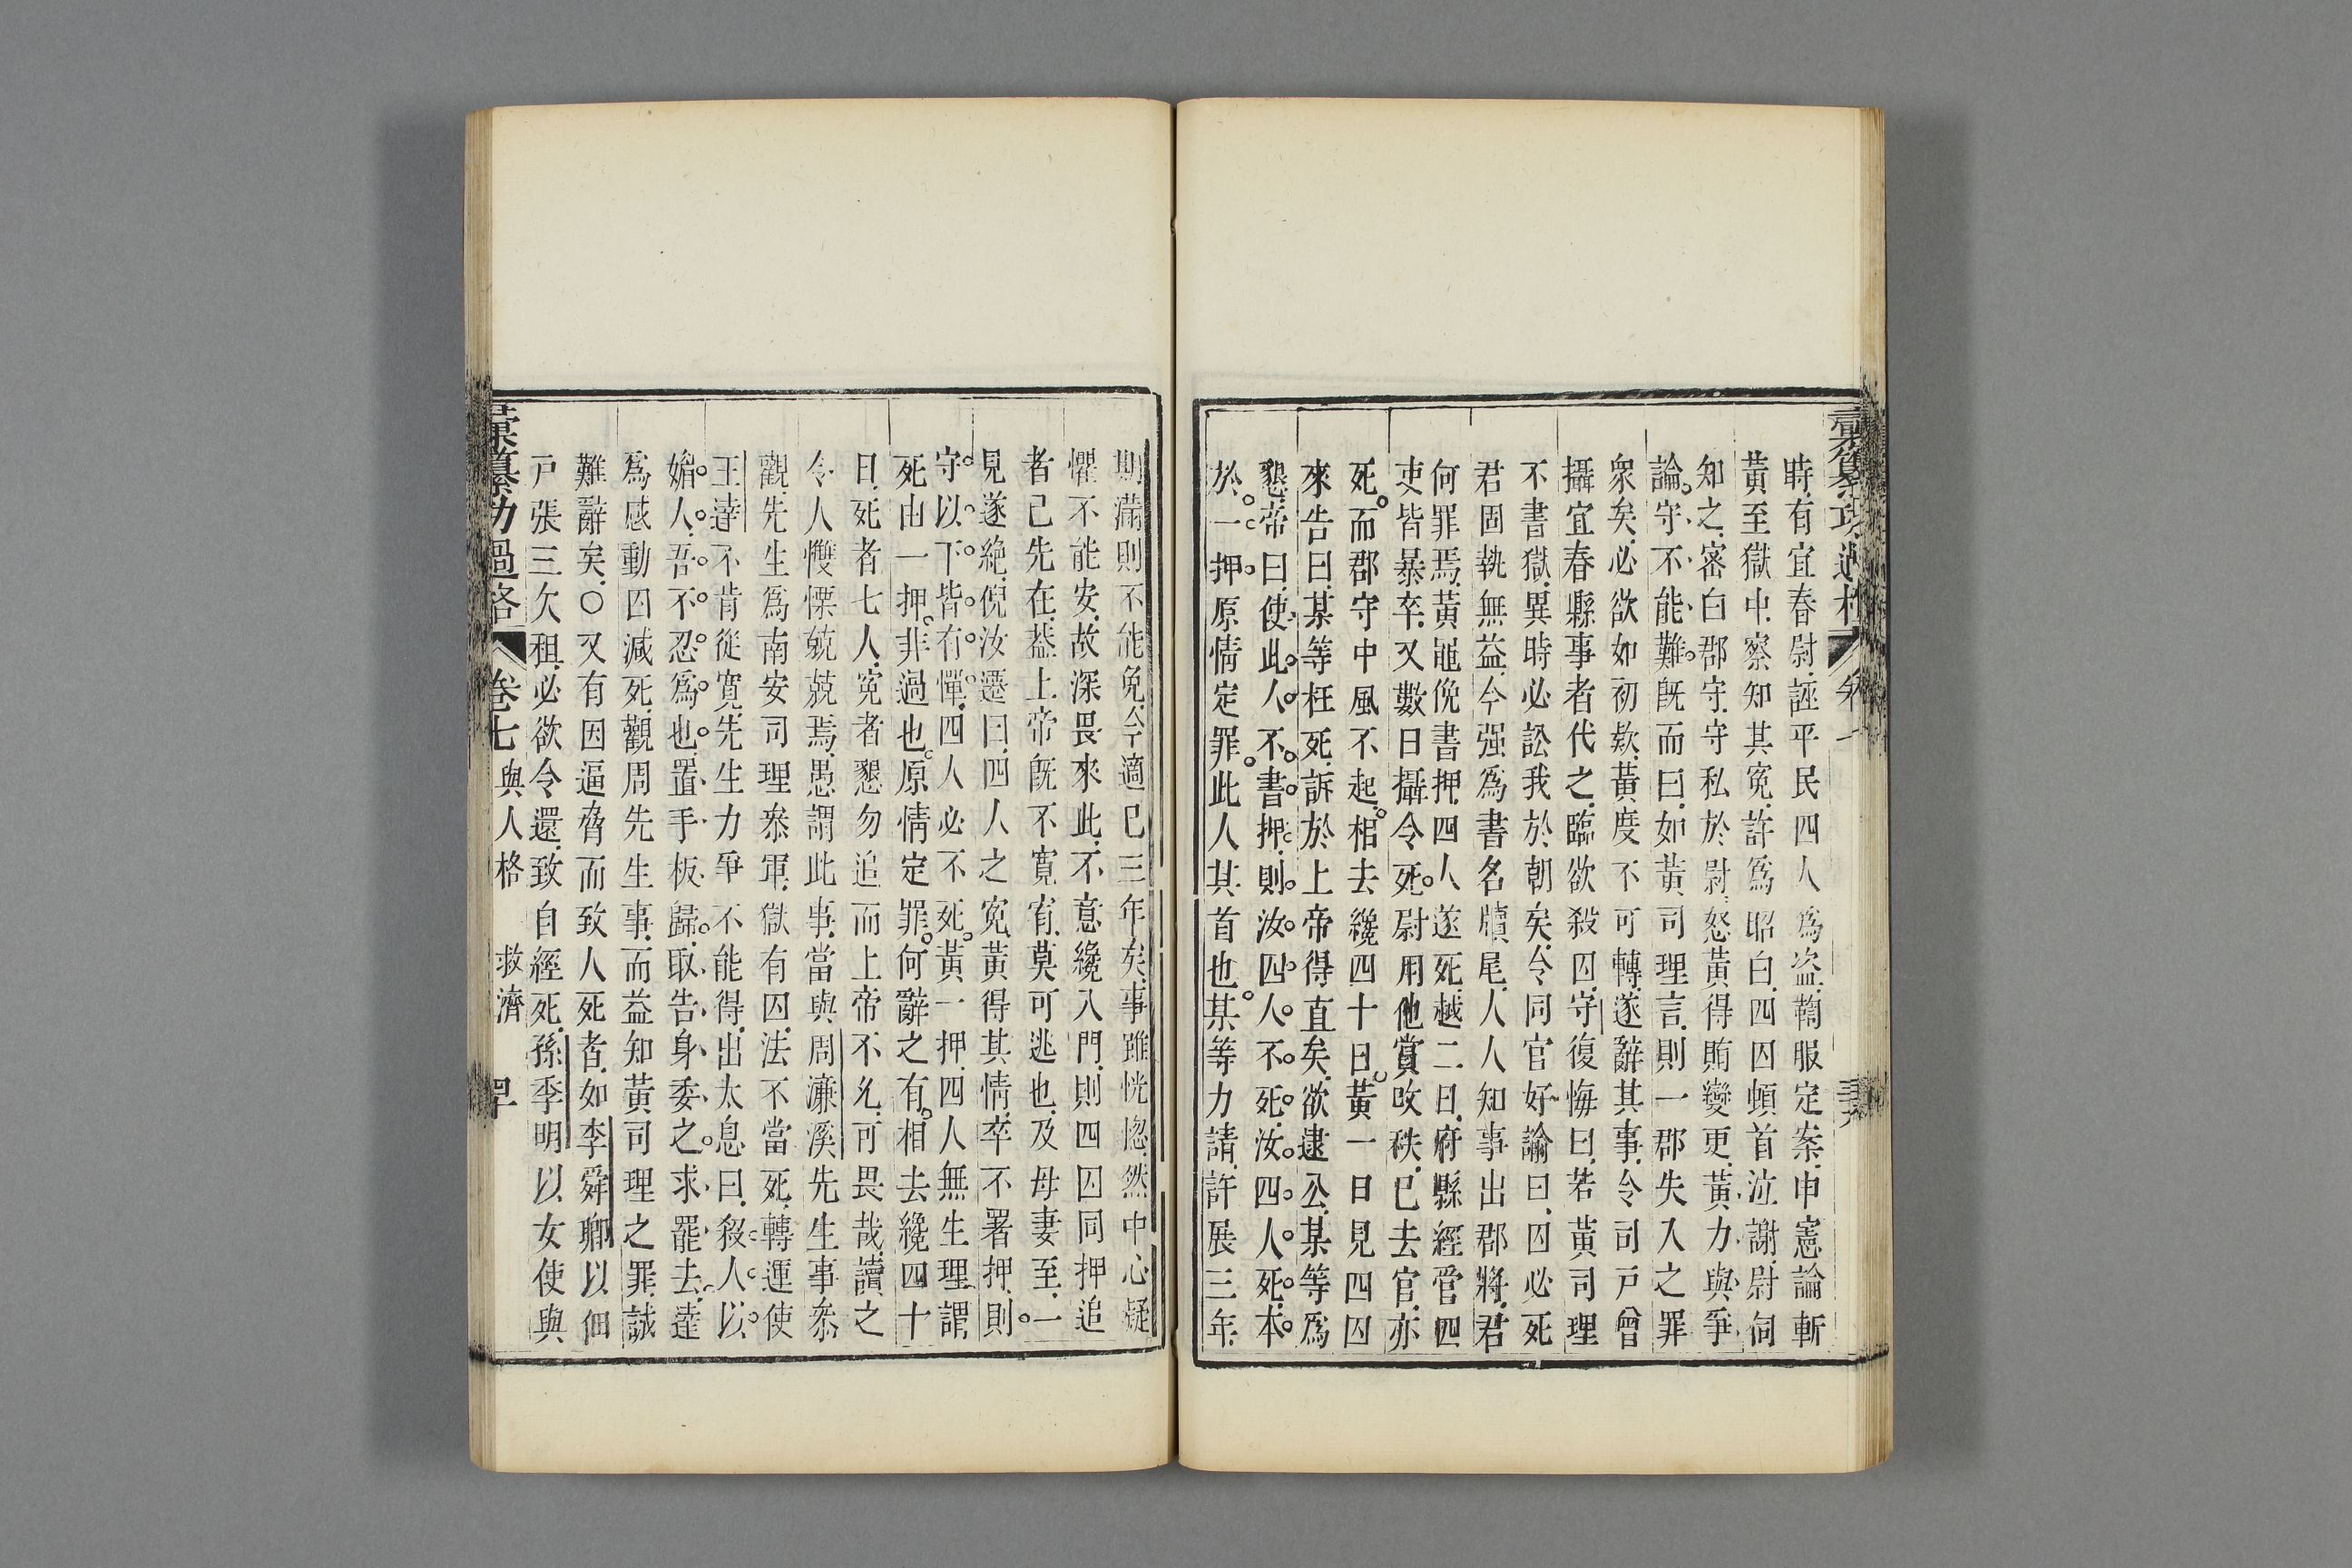 時有宜春尉誣平民四人爲盜鞫服定案申憲論斬
黃至獄中察知其寃許爲昭白四囚頓首泣謝尉伺
知之密白郡守守私於尉怒黃得賄變更黃力與爭
論守不能難旣而曰如黃司理言則一郡失入之罪
衆矣必欲如初欵黃度不可轉遂辭其事令司戸曾
攝宜春縣事者代之臨欲殺囚守復悔曰若黃司理
不書獄異時必訟我於朝矣令同官好諭曰囚必死
君固執無益今强爲書名牘尾人人知事出郡將君
何罪焉黃黽俛書押四人遂死越二日府縣經營四
吏皆暴卒又數日攝令死尉用他賞攺秩已去官亦
死而郡守中風不起相去纔四十日黃一日見四囚
來告曰某等枉死訴於上帝得直矣欲逮公某等爲
懇帝曰使此人不書押則汝四人不死汝四人死本
於一押原情定罪此人其首也某等力請許展三年
期滿則不能免今適已三年矣事雖恍惚然中心疑
懼不能安故深畏來此不意纔入門則四囚同押追
者已先在葢上帝旣不寬宥莫可逃也及母妻至一
見遂絶倪汝遷曰四人之寃黃得其情卒不署押則
守以下皆有憚四人必不死黃一押四人無生理謂
死由一押非過也原情定罪何辭之有相去纔四十
日死者七人寃者懇勿追而上帝不允可畏哉讀之
令人戄慄兢兢焉愚謂此事當與周濂溪先生事叅
觀先生爲南安司理叅軍獄有囚法不當死轉運使
王逵不肯從寬先生力爭不能得出太息曰殺人以
媚人吾不忍爲也置手板歸取告身委之求罷去逵
爲感動囚減死觀周先生事而益知黃司理之罪誠
難辭矣○又有因逼脅而致人死者如李舜卿以佃
戸張三欠租必欲令還致自經死孫季明以女使與
彙纂功過格 卷七 與人格 救濟 罕